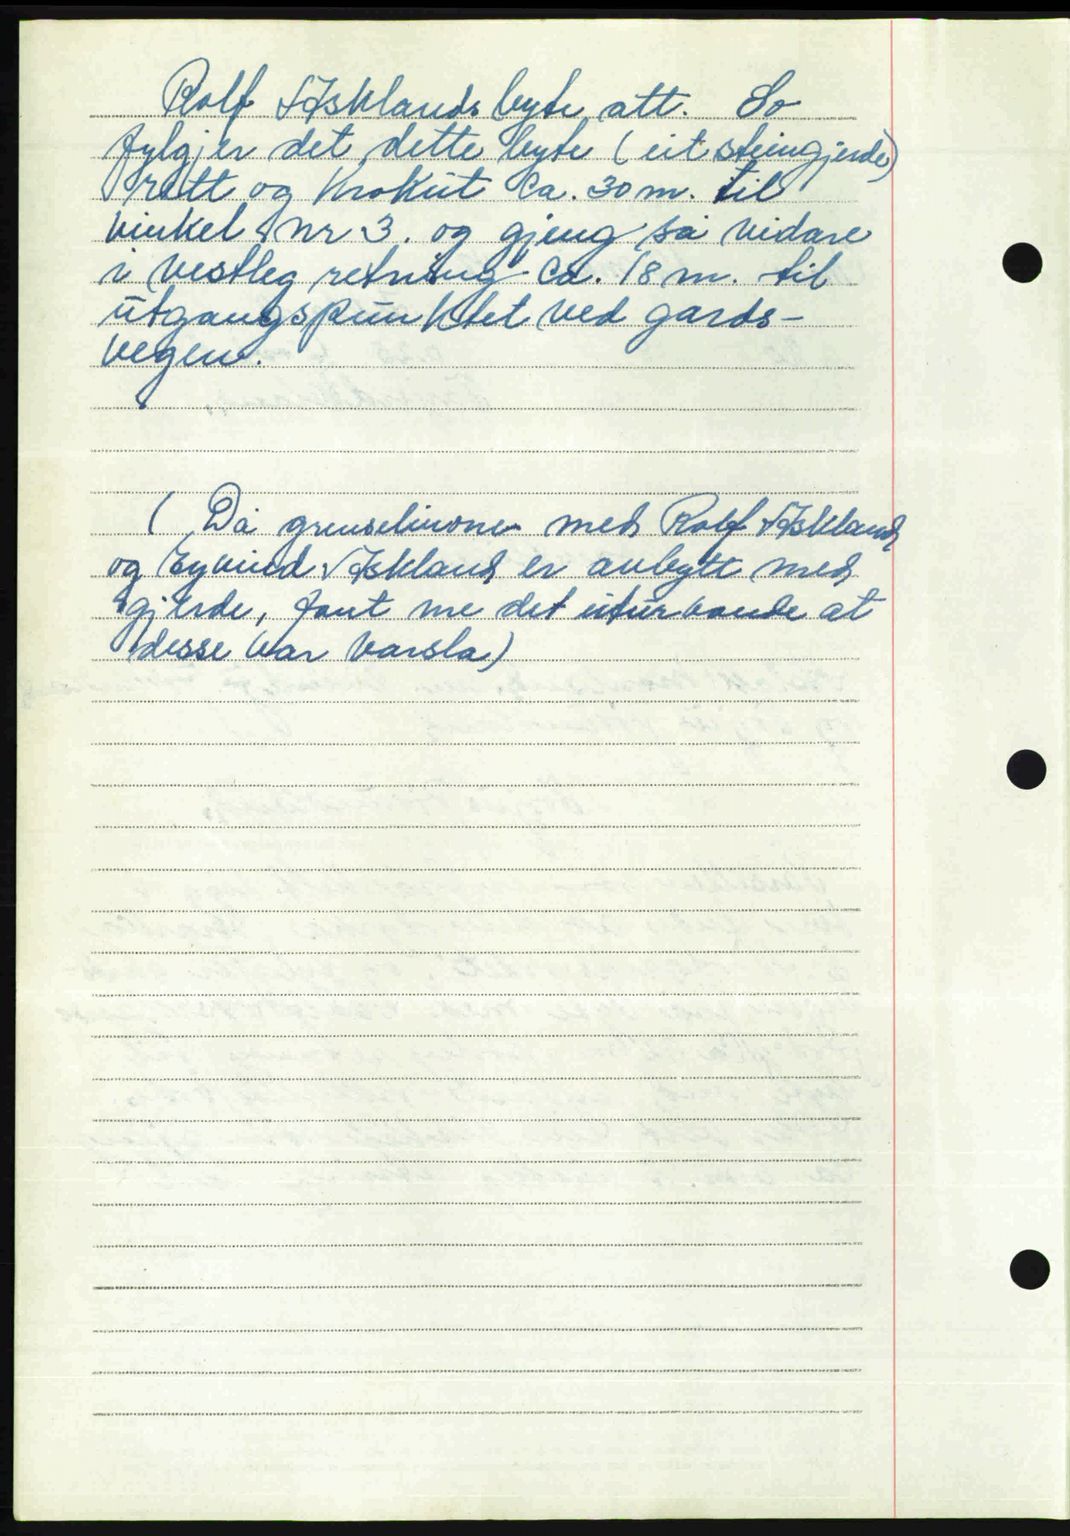 Rolf Væsklands byte att. So
fylgjer det dette byte (eit steingjerde)
rett og krokut ca. 30 m. til
vinkel nr 3. og gjeng så vidare
i vestleg retning ca. 18 m. til
utgangspunktet ved gards-
vegen.
( Då grenselinone med Rolf Væskland
og Eyvind Væskland er avbytt med
gjerde, fant me det uturvande at
desse var varsla)